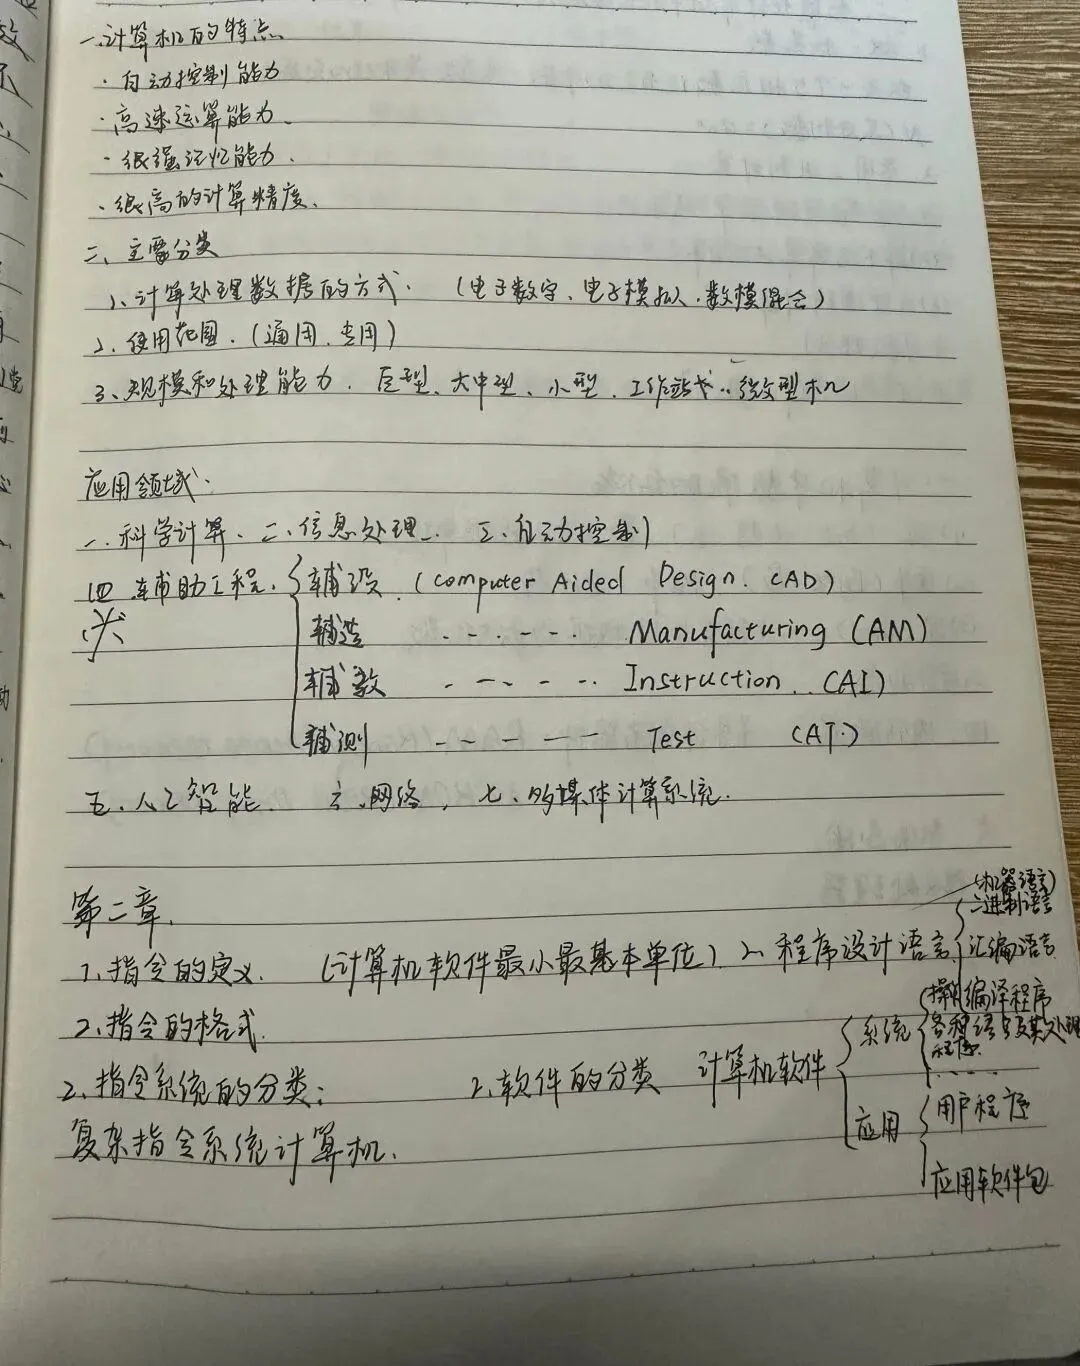 一.计算机的特点
·自动控制能力
·高速运算能力.
·很强记忆能力.
·很高的计算精度.
二、主要分类
1、计算处理数据的方式. (电子数字、电子模拟、数模混合)
2、使用范围.(通用、专用)
3、规模和处理能力. 巨型、大中型、小型. 工作站.. 微型机
应用领域:
一.科学计算、二.信息处理.. 三.自动控制
四 辅助工程. 辅设.(Computer Aided Design. CAD)
辅造 ------ Manufacturing (AM)
辅教 ------ Instruction.. (AI)
辅测 ------ Test (AT.)
五.人工智能. 六.网络, 七、多媒体计算系统.
第二章.
1.指令的定义. (计算机软件最小最基本单位) 2.程序设计语言
(机器语言)
二进制语言
汇编语言
2.指令的格式.
2.指令系统的分类:
复杂指令系统计算机.
2.软件的分类 计算机软件
系统
编译程序
各种语言及其处理
程序
.....
应用
用户程序
应用软件包